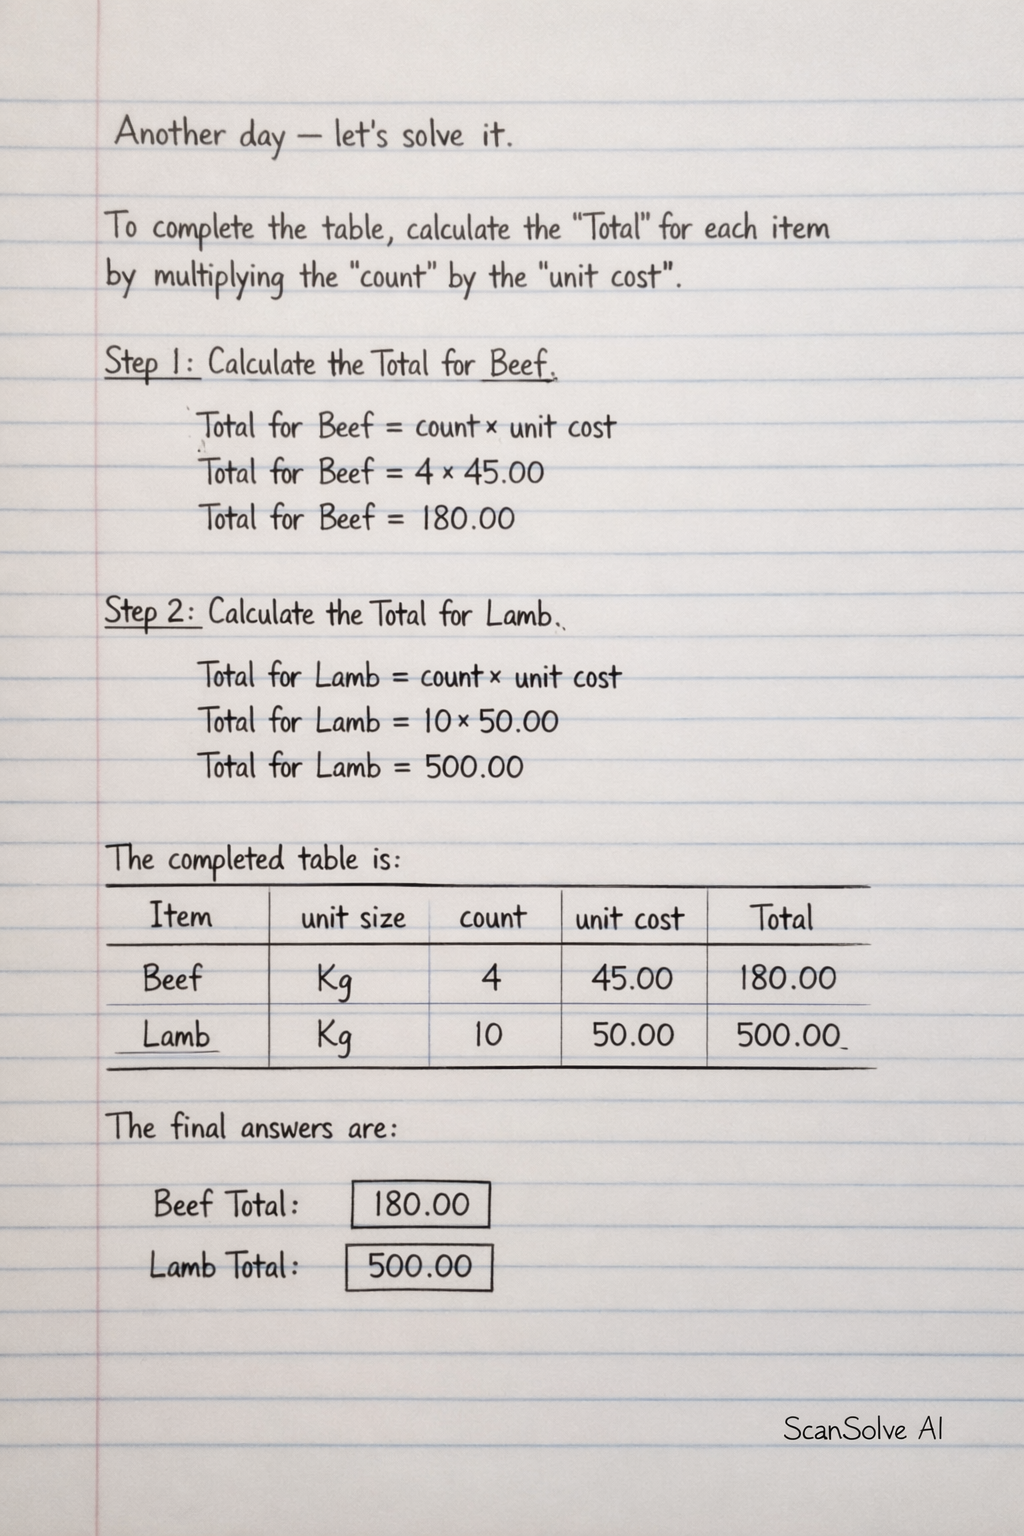 Another day — let's solve it.
To complete the table, calculate the "Total" for each item
by multiplying the "count" by the "unit cost".
Step 1: Calculate the Total for Beef.
Total for Beef = count × unit cost
Total for Beef = 4 × 45.00
Total for Beef = 180.00
Step 2: Calculate the Total for Lamb.
Total for Lamb = count × unit cost
Total for Lamb = 10 × 50.00
Total for Lamb = 500.00
The completed table is:
Item unit size count unit cost Total
Beef Kg 4 45.00 180.00
Lamb Kg 10 50.00 500.00
The final answers are:
Beef Total: 180.00
Lamb Total: 500.00
ScanSolve AI